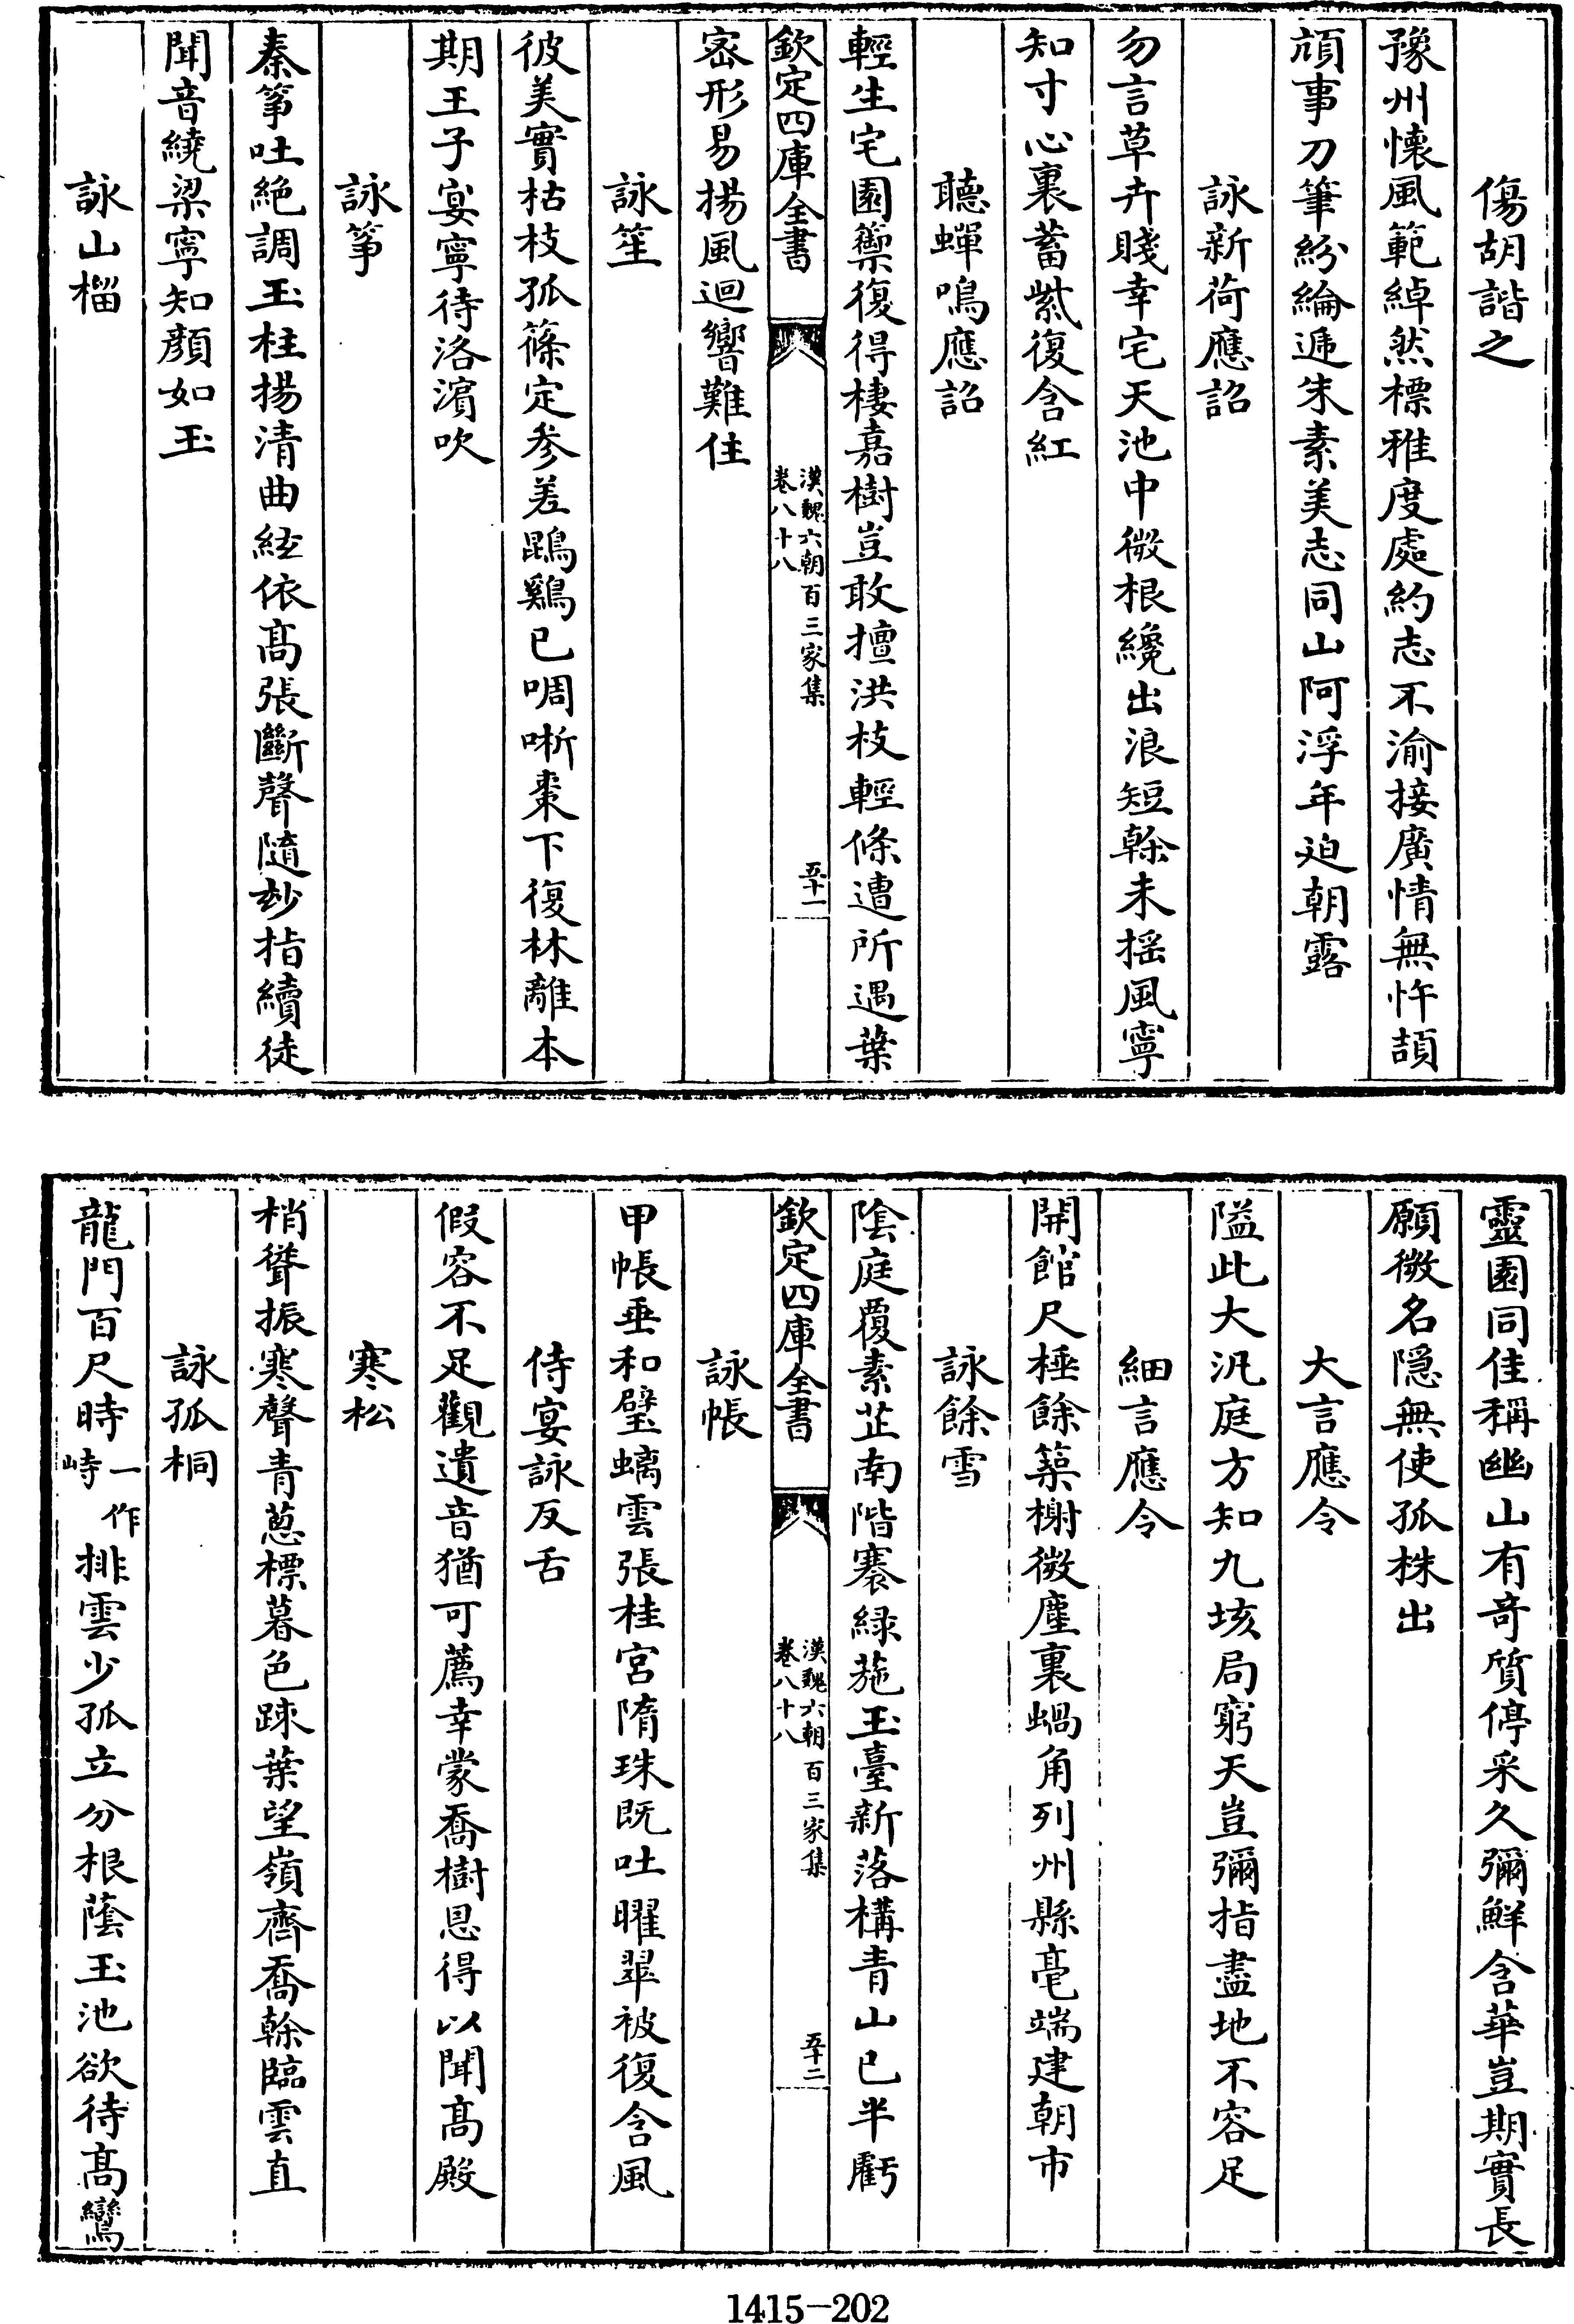 傷胡諧之
豫州懷風範綽然標雅度處約志不渝接廣情無忤頡
頏事刀筆紛綸逓朱素美志同山阿浮年迫朝露
詠新荷應詔
勿言草卉賤幸宅天池中微根纔出浪短榦未揺風寧
知寸心裏蓄紫復含紅
聽蟬鳴應詔
輕生宅園籞復得棲嘉樹豈敢擅洪枝輕條遭所遇葉
欽定四庫全書
漢魏六朝百三家集
卷八十八
五十一
宻形易揚風迴響難住
詠笙
彼美實枯枝孤篠定參差鵾鷄已啁哳棗下復林離本
期王子宴寧待洛濵吹
詠箏
秦箏吐絶調玉柱揚清曲絃依髙張斷聲隨妙指續徒
聞音繞梁寧知顔如玉
詠山榴
靈園同佳稱幽山有奇質停采久彌鮮含華豈期實長
願微名隠無使孤株出
大言應令
隘此大汎庭方知九垓局窮天豈彌指盡地不容足
細言應令
開館尺棰餘築榭微塵裏蝸角列州縣毫端建朝市
詠餘雪
陰庭覆素芷南階褰緑葹玉臺新落構青山已半虧
欽定四庫全書
漢魏六朝百三家集
卷八十八
五十二
詠帳
甲帳垂和璧螭雲張桂宮隋珠既吐曜翠被復含風
侍宴詠反舌
假容不足觀遺音猶可薦幸蒙喬樹恩得以聞髙殿
寒松
梢聳振寒聲青蔥標暮色疎葉望嶺齊喬榦臨雲直
詠孤桐
龍門百尺時一作峙排雲少孤立分根蔭玉池欲待髙鸞
1415-202